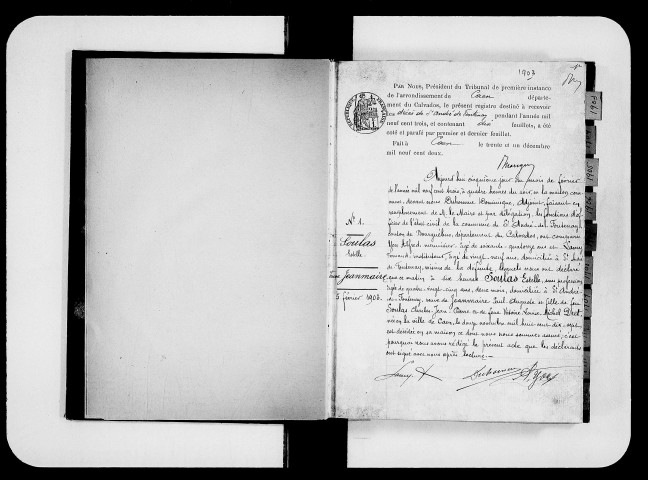 1903
PAR NOUS, Président du Tribunal de première instance
de l'arrondissement de Caen départe-
ment du Calvados, le présent registre destiné à recevoir
les décès de St André de Fontenay pendant l'année mil
neuf cent trois, et contenant six feuillets, a été
coté et parafé par premier et dernier feuillet.
Fait à Caen le trente et un décembre
mil neuf cent deux.
Aujourd'hui cinquième jour du mois de février
de l'année mil neuf cent trois, à quatre heures du soir en la maison com-
mune, devant nous Duhomme Dominique, Adjoint, faisant en
remplacement de M. le Maire et par délégation, les fonctions d'of-
ficier de l'état civil de la commune de St André-de-Fontenay,
canton de Bourguébus, département du Calvados, ont comparu
Yon Alfred menuisier, âgé de soixante-quatorze ans et
instituteur, âgé de vingt-neuf ans, domiciliés à St André
de Fontenay, voisins de la défunte, lesquels nous ont déclaré
que ce matin, à dix heures Soulas Estelle, sans profession
âgée de quatre-vingt-cinq ans, deux mois, domiciliée à St André-
de-Fontenay, veuve de Jeanmaire Auguste et fille de feu
Soulas Charles Jean Pierre et de feue Victoire Louise
née en la ville de Caen, le douze novembre mil huit cent dix-sept
est décédée en sa maison ce dont nous nous sommes assuré; c'est
pourquoi nous avons rédigé le présent acte que les déclarants
ont signé avec nous après lecture.
N° 1.
Soulas
Estelle
Veuve Jeanmaire
5 février 1903.
A. Yon
1903
1905